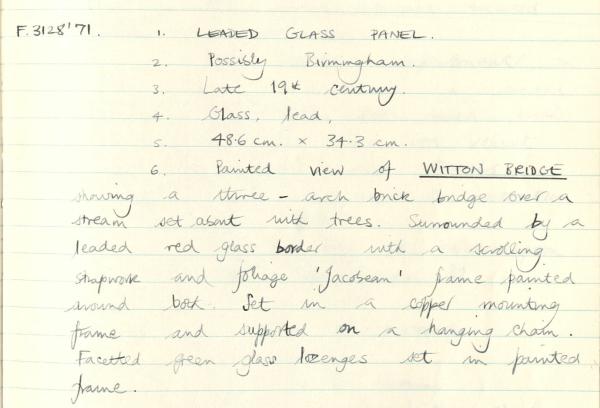 F.3128'71. 1. LEADED GLASS PANEL.
2. Possibly Birmingham.
3. Late 19th century.
4. Glass, lead,
5. 48.6 cm. × 34.3 cm.
6. Painted view of WITTON BRIDGE
showing a three-arch brick bridge over a
stream set about with trees. Surrounded by a
leaded red glass border with a scrolling
strapwork and foliage 'Jacobean' frame painted
around both. Set in a copper mounting
frame and supported on a hanging chain.
Facetted green glass lozenges set in painted
frame.